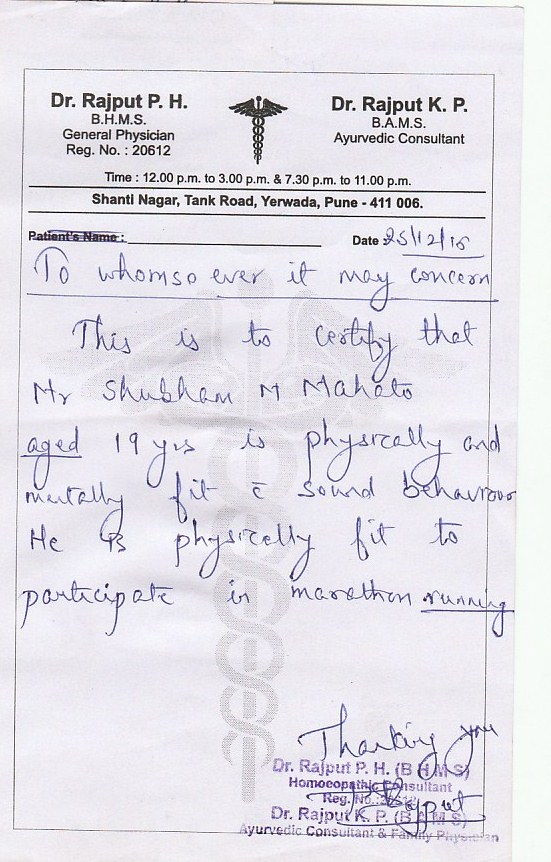 Dr. Rajput P. H.
B.H.M.S.
General Physician
Reg. No. : 20612
Dr. Rajput K. P.
B.A.M.S.
Ayurvedic Consultant
Time : 12.00 p.m. to 3.00 p.m. & 7.30 p.m. to 11.00 p.m.
Shanti Nagar, Tank Road, Yerwada, Pune - 411 006.
Patient's Name :
Date 25/12/15
To whomso ever it may concern
This is to certify that
Mr Shubham M Mahato
aged 19 yrs is physically and
mentally fit c̄ sound behaviour
He is physically fit to
participate in marathon running
Thanking you
Dr. Rajput P. H. (B H M S)
Homoeopathic Consultant
Reg. No.:
Rajput
Dr. Rajput K. P. (B A M S)
Ayurvedic Consultant & Family Physician